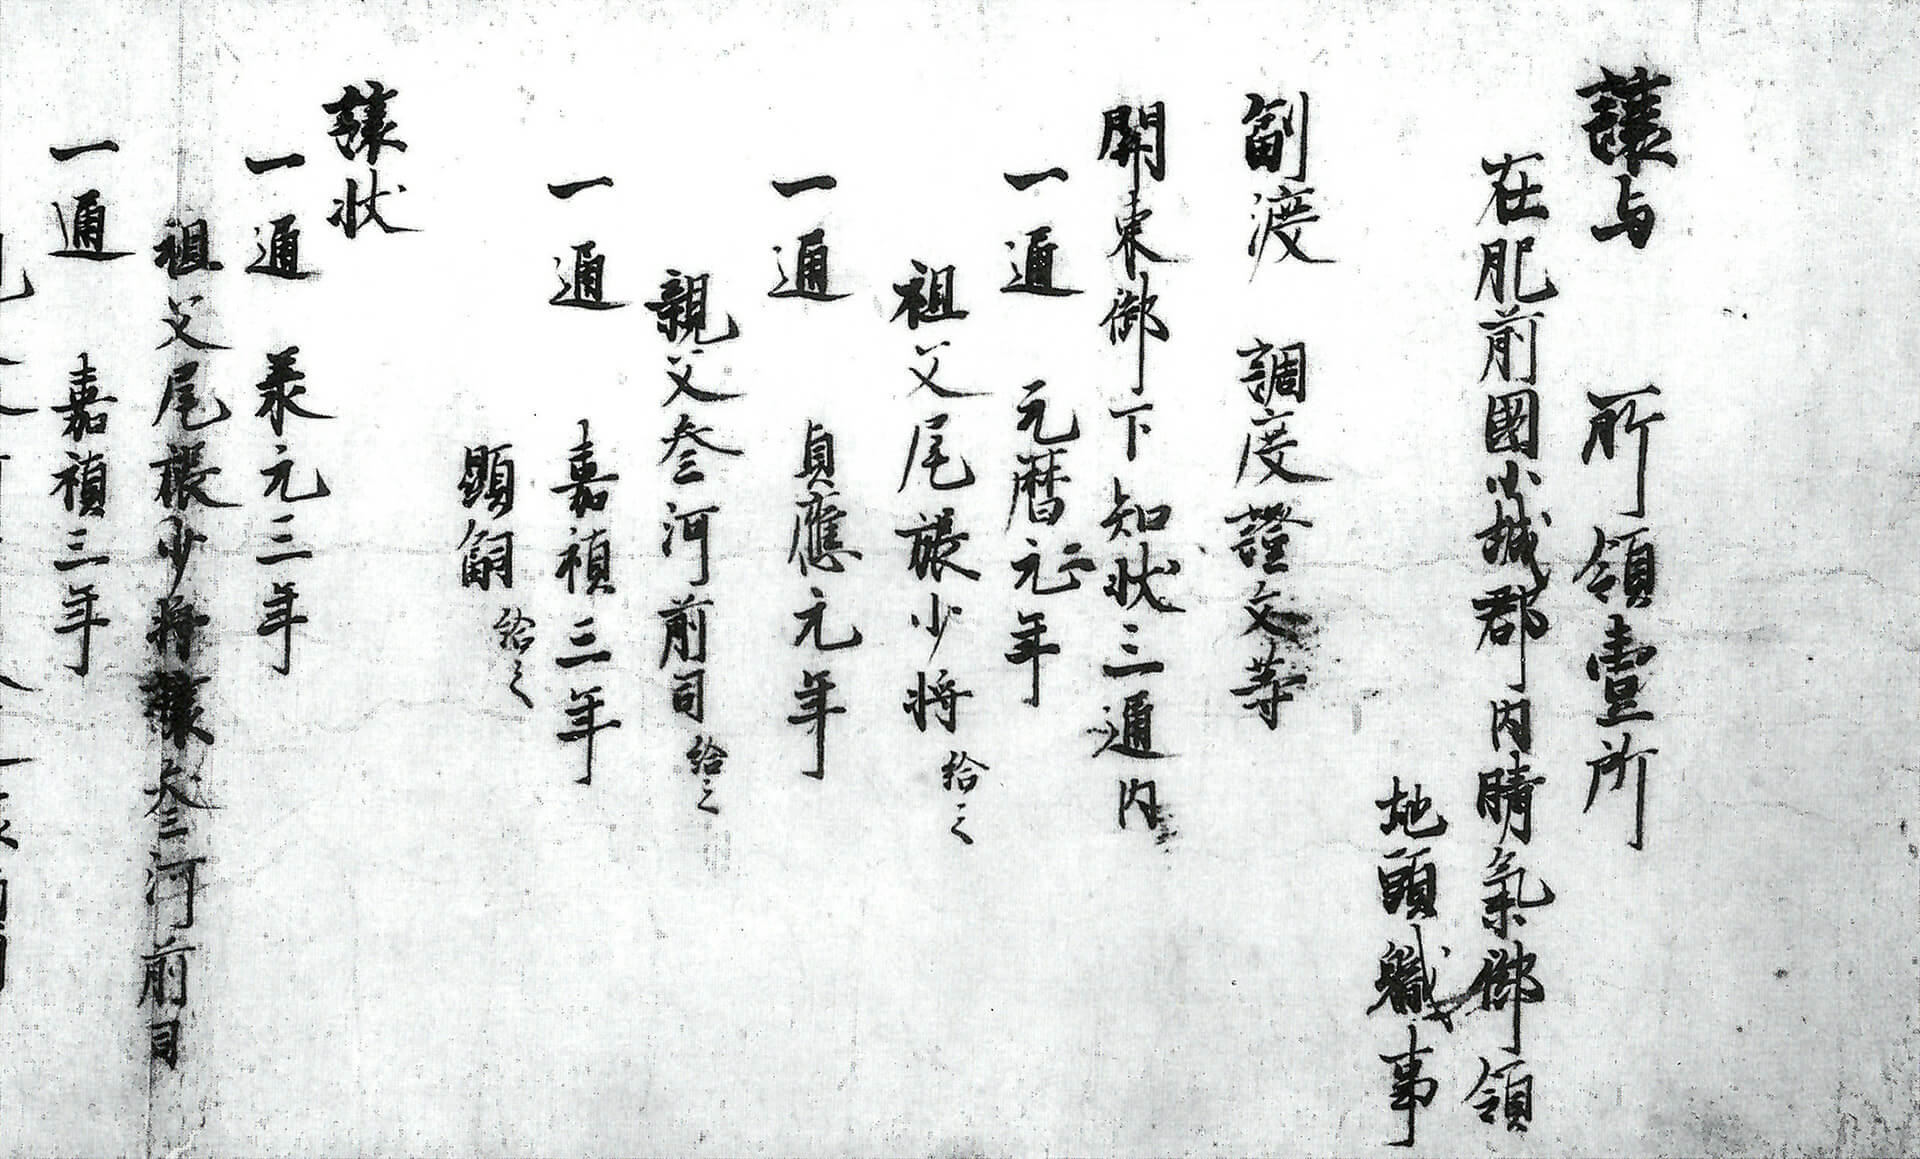 譲与　所領壹所
在肥前國小城郡内晴氣御領
地頭職事
副渡　調度證文等
関東御下知状三通内
一通　元暦二元年
祖父尾張少将給之
一通　貞應元年
親父叄河前司給之
一通　嘉禎三年
顕嗣給之
譲状
一通　承元三年
祖父尾張少将譲叄河前司
一通　嘉禎三年